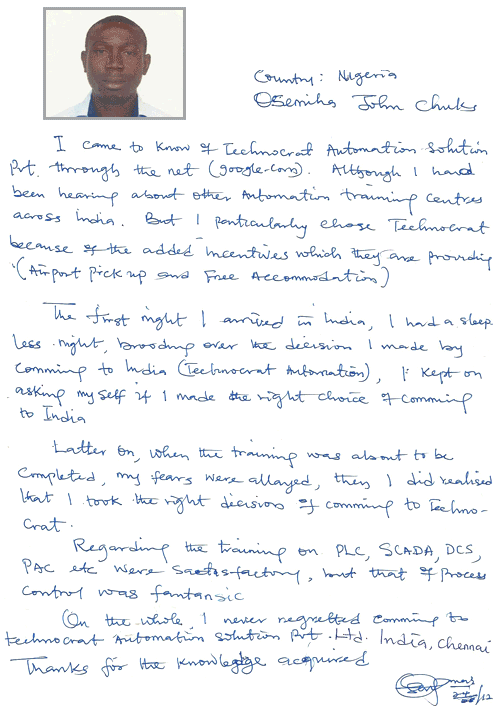 Country: Nigeria
Osemiha John Chuks
I came to know of Technocrat Automation Solution
Pvt. through the net (google.com). Although I had
been hearing about other Automation training centres
across India. But I particularly chose Technocrat
because of the added incentives which they are providing
(Airport pick up and Free Accommodation)
The first night I arrived in India, I had a sleep
less night, brooding over the decision I made by
comming to India (Technocrat Automation), I kept on
asking my self if I made the right choice of comming
to India
Latter on, when the training was about to be
completed, my fears were allayed, then I did realised
that I took the right decision of comming to Techno-
crat.
Regarding the training on PLC, SCADA, DCS,
PAC etc were Sactisfactory, but that of Process
control was fantansic
On the whole, I never regretted comming to
technocrat Automation solution Pvt. Ltd. India, Chennai
Thanks for the knowledge acquired